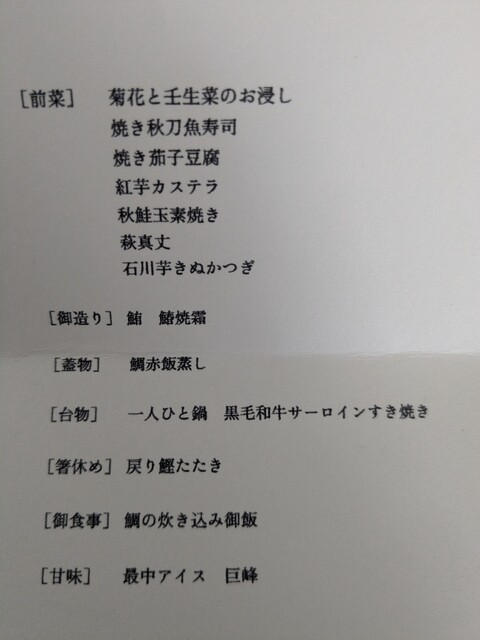 [前菜] 菊花と壬生菜のお浸し
焼き秋刀魚寿司
焼き茄子豆腐
紅芋カステラ
秋鮭玉素焼き
萩真丈
石川芋きぬかつぎ
[御造り] 鮪 鰆焼霜
[蓋物] 鯛赤飯蒸し
[台物] 一人ひと鍋 黒毛和牛サーロインすき焼き
[箸休め] 戻り鰹たたき
[御食事] 鯛の炊き込み御飯
[甘味] 最中アイス 巨峰